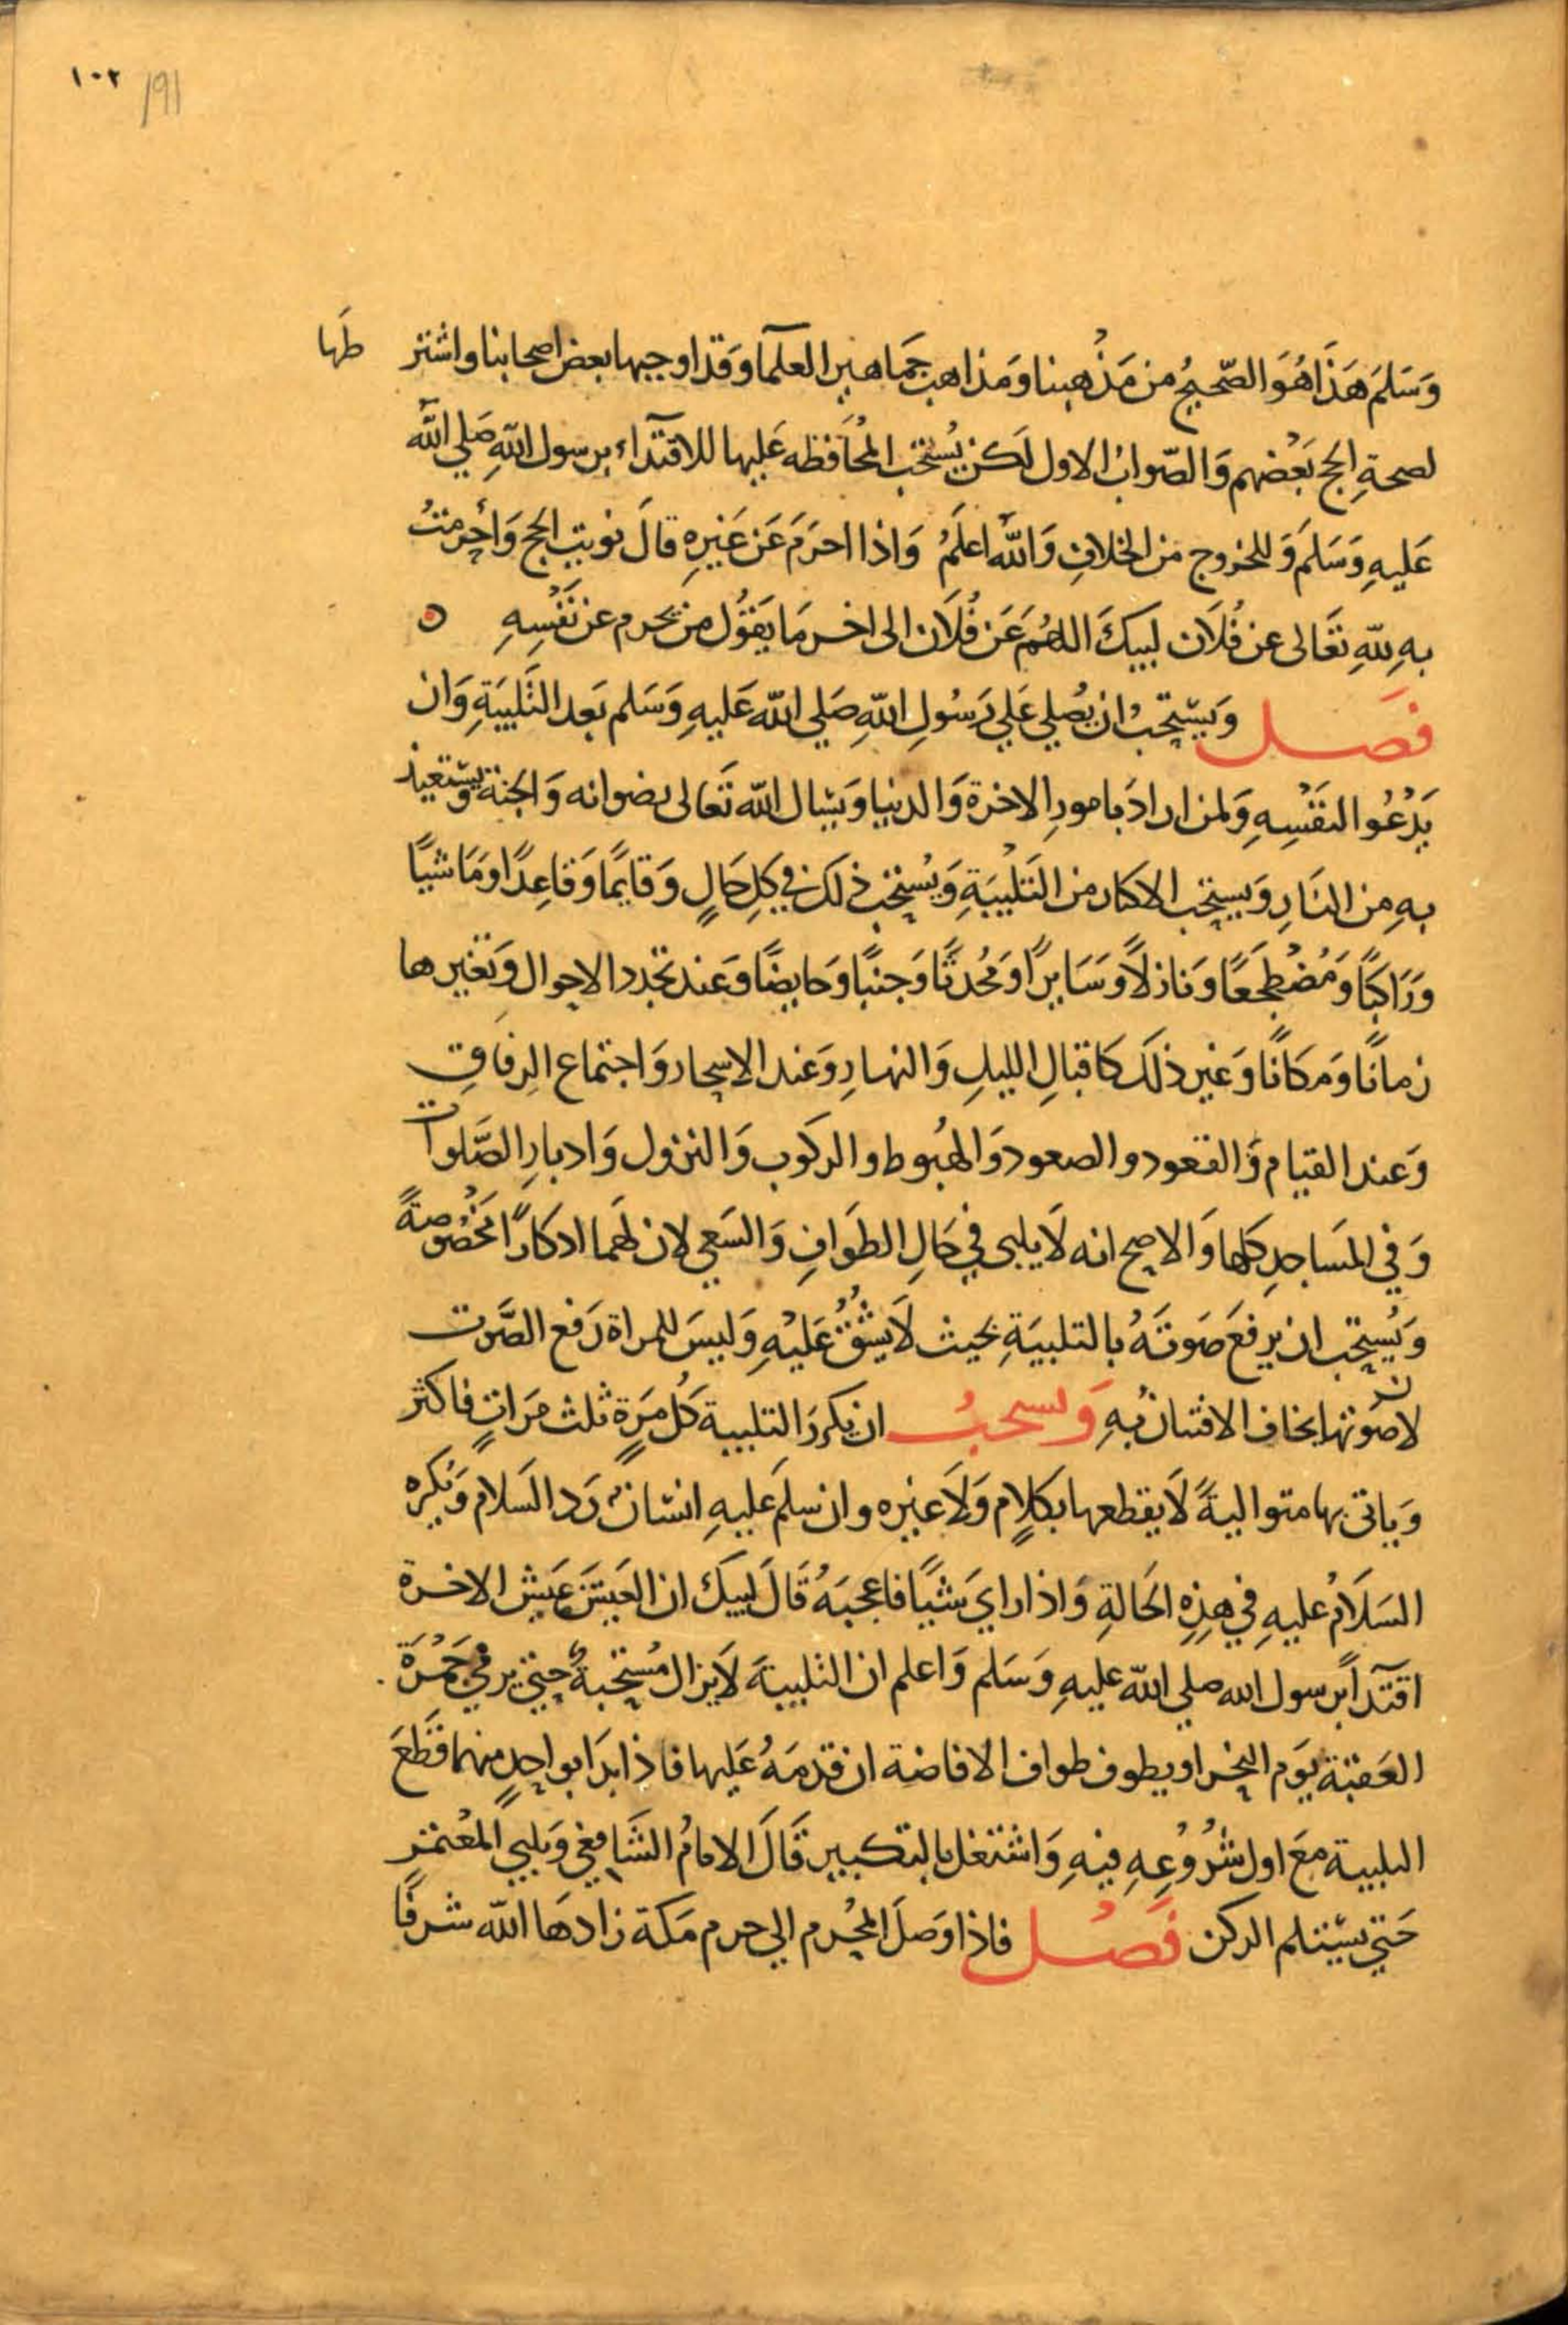 ١٠٢ 191
وَسَلمَ هَذَا هُوَ الصّحيحُ من مَذْهبنا وَمَذاهب جَماهير العلَمآ وَقد اوجبها بعض اصحابنا واشتر طَها
لصحةِ الحج بَعْضهم وَالصّوابُ الاول لَكن يُستحَب المُحَافظه عَليها للاقتدآء برسول اللهِ صَلي اللهُ
عَليهِ وَسَلمَ وَللخروج من الخلافِ وَاللهُ اعلَمُ وَاذا احرَمَ عَن غَيرِهِ قالَ نويت الحج وَأحرمتُ
بهِ للهِ تعَالى عن فُلاَن لبيكَ اللهُمَ عَن فُلاَن الى اخر مَا يَقوُل من يحرم عن نَفْسِهِ ه
فصَل وَيستحَبُ ان يُصلي عَلي رَسُولِ اللهِ صَلي الله عَليهِ وَسَلم بَعد التَلبيَةِ وَان
يَدْعُوا لنفْسِهِ وَلمن ارادَ بامورِ الاخرة وَالدنيا وَيسال الله تَعَالى رضوانه وَالجنة وَيستعيذ
بهِ من النَارِ وَيستحَب الاكثار من التَلْبيَةِ وَيُستحَب ذلكَ في كلِ حَالٍ وَقايمًا وَقاعِدًا وَمَاشيًا
وَرَاكبًا وَمُضْطجعًا وَنازلاً وَسَايرًا وَمُحْدثًا وَجنبًا وَحايضًا وَعند تجدد الاحوال وَتغيرها
زمانًا وَمَكانًا وَغير ذلكَ كَاقبالِ الليلِ وَالنهارِ وَعند الاسحار وَاجتماع الرفاقِ
وَعند القيام وَالقعود والصعود وَالهبُوط والركوب وَالنزول وَادبارِ الصَّلوات
وَفي المسَاجدِ كلها وَالاصح انه لاَ يلبى في حَالِ الطوَافِ وَالسَعي لان لهَما اذكارًا مخْصُوصةً
وَيُستحَب ان يرفعَ صَوتَهُ بالتلبيَةِ بحيث لاَ يشُقُ عَليْهِ وَليسَ للمراة رَفع الصَّوت
لان صَوتها يخاف الافتتان بهِ وَيستحبُ ان يكررَ التلبيةَ كُل مَرَةٍ ثلث مَراتٍ فاكثر
وَياتى بها متواليةً لاَ يقطعها بكلاَمٍ وَلاَ غيره وان سلمَ عَليهِ انسانٌ رَد السَلاَمَ وَيُكره
السَلاَمُ عليهِ في هذهِ الحَالةِ وَاذا رايَ شيًا فاعجبَهُ قَالَ لبيكَ ان العَيشَ عَيش الاخرة
اقتدآً برسول الله صلي الله عليهِ وَسَلم وَاعلم ان التلبيةَ لاَ يزال مُستحبةٌ حتي يرمي جَمْرَة
العَقبَة يَوم النحْر او يطوف طواف الافاضة ان قدمَهُ عَليها فاذا بدَا بواحدٍ منهما قَطعَ
التلبية مَعَ اول شرُوُعهِ فيهِ وَاشتغل بالتكبير قَالَ الامامُ الشَافِعي وَيلبي المعْتمر
حَتي يسْتلم الركن فَصْل فاذا وَصلَ المحْرم الي حرم مَكة زادهَا الله شرفًا